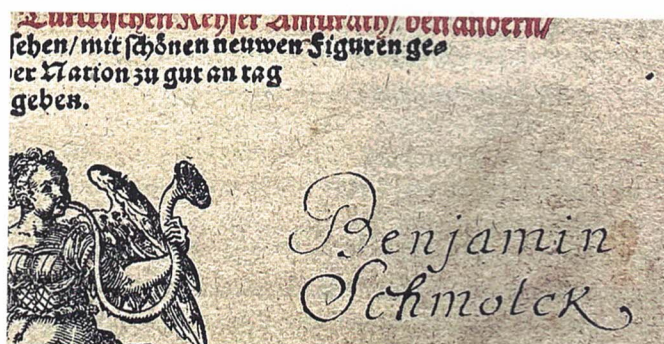 Türckischen Keyser Amurath/ den andern/
sehen/ mit schönen neuwen Figuren ge⸗
er Nation zu gut an tag
geben.
Benjamin
Schmolck,